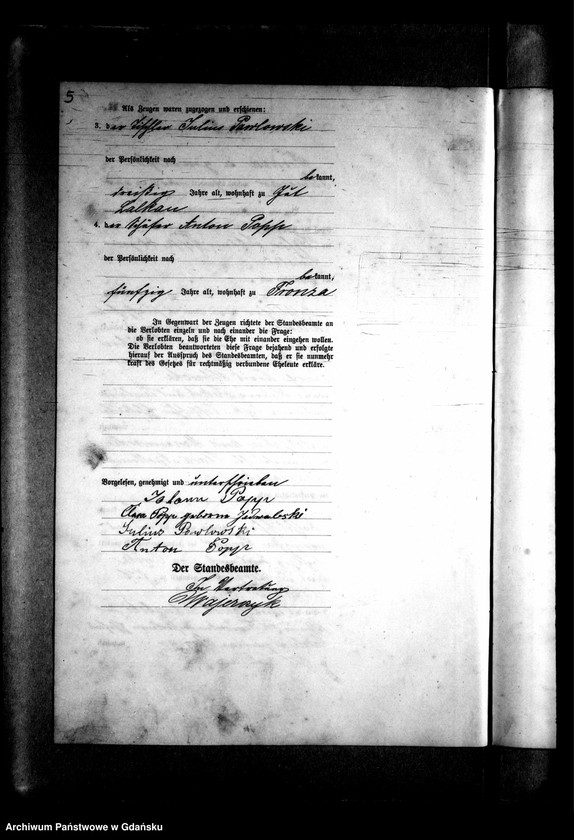 5
Als Zeugen waren zugezogen und erschienen:
3. der Tischler Julius Pawlowski
der Persönlichkeit nach
bekannt,
dreißig Jahre alt, wohnhaft zu Gut
Lalkau
4. der Schäfer Anton Popp
der Persönlichkeit nach
bekannt,
fünfzig Jahre alt, wohnhaft zu Pronza
In Gegenwart der Zeugen richtete der Standesbeamte an
die Verlobten einzeln und nach einander die Frage:
ob sie erklären, daß sie die Ehe mit einander eingehen wollen.
Die Verlobten beantworteten diese Frage bejahend und erfolgte
hierauf der Ausspruch des Standesbeamten, daß er sie nunmehr
kraft des Gesetzes für rechtmäßig verbundene Eheleute erkläre.
Vorgelesen, genehmigt und unterschrieben
Johann Popp
Popp geborene
Julius Pawlowski
Anton Popp
Der Standesbeamte.
In Vertretung
Archiwum Państwowe w Gdańsku